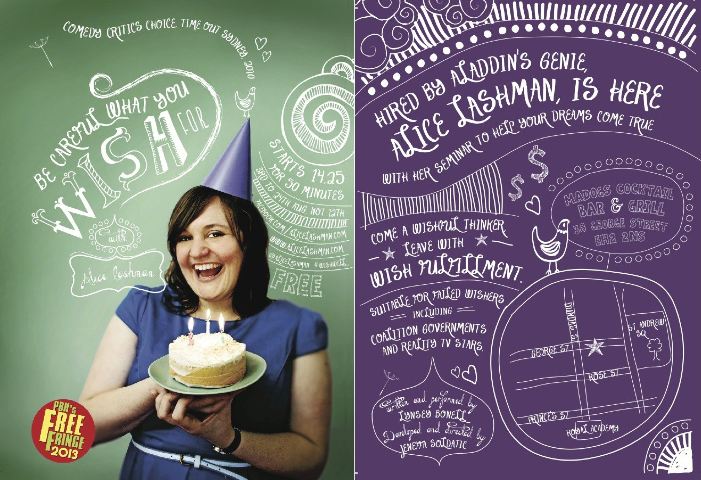 COMEDY CRITICS CHOICE, TIME OUT SYDNEY 2010
BE CAREFUL WHAT YOU
WISH FOR
with
Alice Lashman
STARTS 14.25
FOR 50 MINUTES
WWW.ALICELASHMAN.COM
FREE
PBH's
FREE
FRINGE
2013
HIRED BY ALADDIN'S GENIE,
ALICE LASHMAN, IS HERE
WITH HER SEMINAR TO HELP YOUR DREAMS COME TRUE
$ $
COME A WISHFUL THINKER
LEAVE WITH
WISH FULFILLMENT.
SUITABLE FOR FAILED WISHERS
INCLUDING
COALITION GOVERNMENTS
AND REALITY TV STARS.
Written and performed by
LYNSEY BONELL
Developed and directed by
MADOGS COCKTAIL
BAR & GRILL
38 GEORGE STREET
EH2 2NS
ST ANDREW
SQ
GEORGE ST
ROSE ST
PRINCES ST
ROYAL ACADEMY